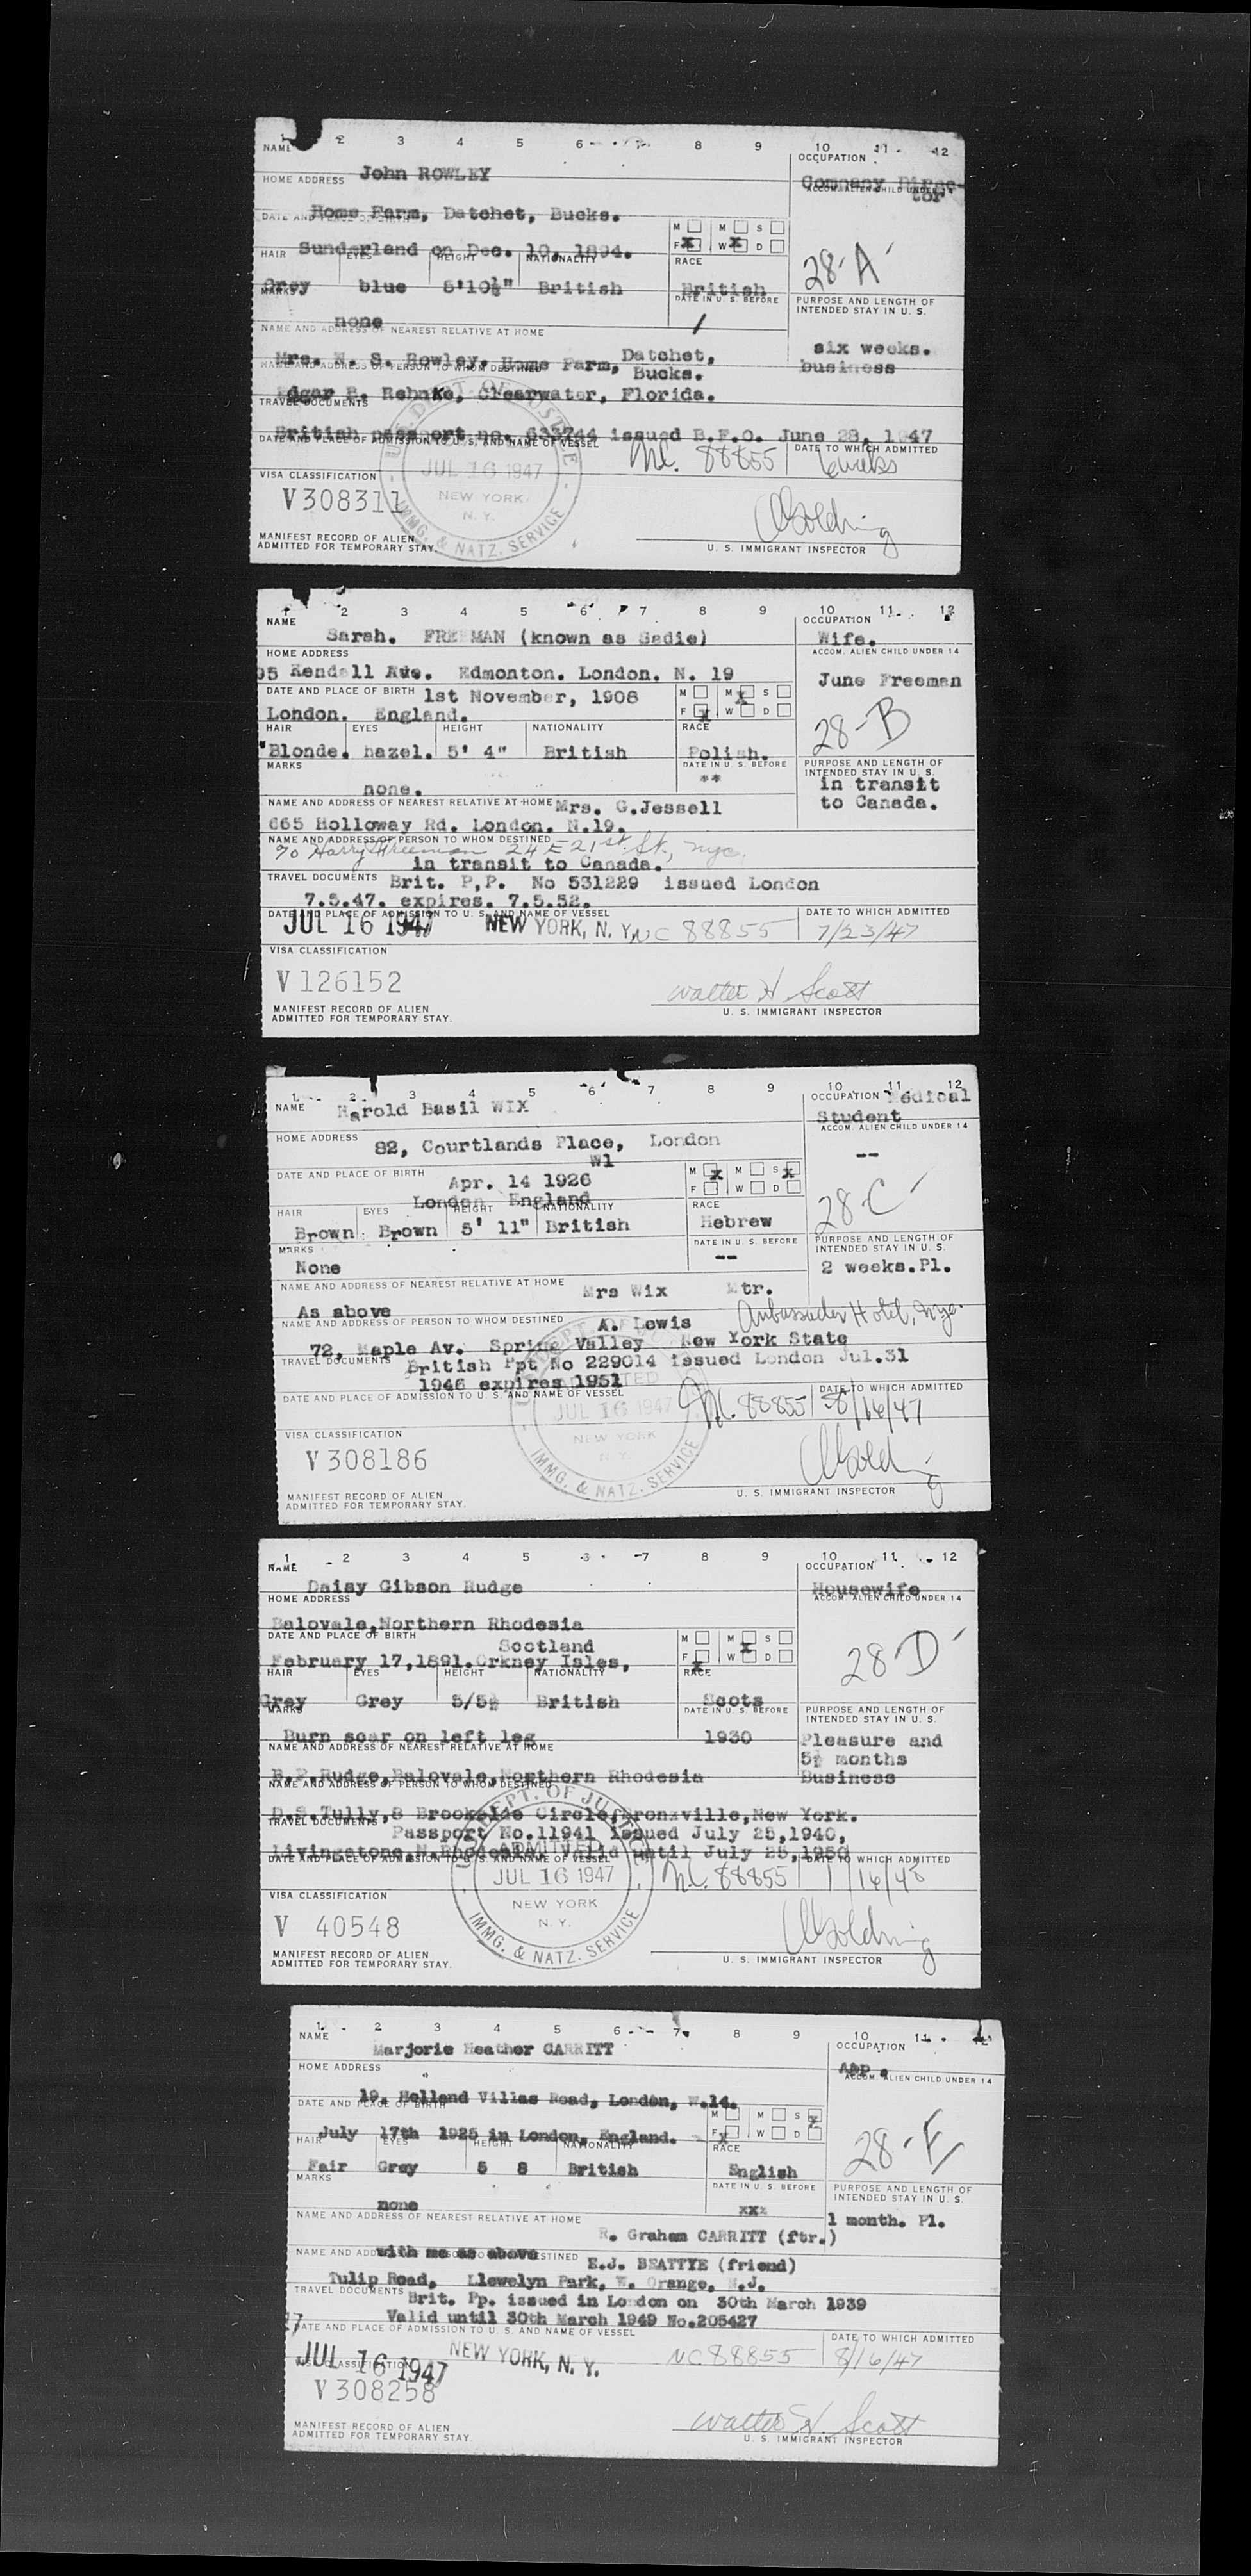 1 2 3 4 5 6 7 8 9 10 11 12
NAME John ROWLEY
OCCUPATION Company Direc-
tor
HOME ADDRESS
ACCOM. ALIEN CHILD UNDER 14
Home Farm, Datchet, Bucks.
DATE AND PLACE OF BIRTH
M M S
F x W x D
Sunderland on Dec. 10, 1894.
HAIR EYES HEIGHT NATIONALITY RACE
28-A
Grey blue 5'10½" British British
MARKS DATE IN U. S. BEFORE
PURPOSE AND LENGTH OF
INTENDED STAY IN U. S.
none /
NAME AND ADDRESS OF NEAREST RELATIVE AT HOME
six weeks.
business
Mrs. S. Rowley, Home Farm, Datchet,
Bucks.
NAME AND ADDRESS OF PERSON TO WHOM DESTINED
Edgar Rehnke, Clearwater, Florida.
TRAVEL DOCUMENTS
British passport no. 633744 issued B.F.O. June 28, 1947
DATE AND PLACE OF ADMISSION TO U. S. AND NAME OF VESSEL
DATE TO WHICH ADMITTED
88855 6 weeks
U. S. DEPT. OF JUSTICE
JUL 16 1947
NEW YORK
N. Y.
IMMG. & NATZ. SERVICE
VISA CLASSIFICATION
V308311
Golding
MANIFEST RECORD OF ALIEN
ADMITTED FOR TEMPORARY STAY.
U. S. IMMIGRANT INSPECTOR
1 2 3 4 5 6 7 8 9 10 11 12
NAME OCCUPATION
Sarah. FREEMAN (known as Sadie) Wife.
HOME ADDRESS ACCOM. ALIEN CHILD UNDER 14
95 Kendall Ave. Edmonton. London. N. 19 June Freeman
DATE AND PLACE OF BIRTH 1st November, 1908
M M x S
F x W D
London. England.
28-B
HAIR EYES HEIGHT NATIONALITY RACE
Blonde. hazel. 5' 4" British Polish.
MARKS DATE IN U. S. BEFORE
PURPOSE AND LENGTH OF
INTENDED STAY IN U. S.
none. **
in transit
to Canada.
NAME AND ADDRESS OF NEAREST RELATIVE AT HOME Mrs. G.Jessell
665 Holloway Rd. London. N.19.
NAME AND ADDRESS OF PERSON TO WHOM DESTINED
To Harry Freeman 24 E 21st. St., nyc.
in transit to Canada.
TRAVEL DOCUMENTS Brit. P.P. No 531229 issued London
7.5.47. expires. 7.5.52.
DATE AND PLACE OF ADMISSION TO U. S. AND NAME OF VESSEL DATE TO WHICH ADMITTED
JUL 16 1947 NEW YORK, N. Y. NC 88855 7/23/47
VISA CLASSIFICATION
V 126152
Walter H Scott
MANIFEST RECORD OF ALIEN
ADMITTED FOR TEMPORARY STAY.
U. S. IMMIGRANT INSPECTOR
1 2 3 4 5 6 7 8 9 10 11 12
NAME Harold Basil WIX
OCCUPATION Medical
Student
HOME ADDRESS 82, Courtlands Place, London
W1
ACCOM. ALIEN CHILD UNDER 14
--
DATE AND PLACE OF BIRTH Apr. 14 1926
London England
M x M S x
F W D
28-C
HAIR EYES HEIGHT NATIONALITY RACE
Brown Brown 5' 11" British Hebrew
MARKS DATE IN U. S. BEFORE
PURPOSE AND LENGTH OF
INTENDED STAY IN U. S.
None -- 2 weeks.Pl.
NAME AND ADDRESS OF NEAREST RELATIVE AT HOME Mrs Wix Mtr.
As above
NAME AND ADDRESS OF PERSON TO WHOM DESTINED A. Lewis Ambassador Hotel, nyc.
72, Maple Av. Spring Valley New York State
TRAVEL DOCUMENTS British Ppt No 229014 issued London Jul.31
1946 expires 1951
DATE AND PLACE OF ADMISSION TO U. S. AND NAME OF VESSEL DATE TO WHICH ADMITTED
88855 8/16/47
ADMITTED
JUL 16 1947
NEW YORK
N. Y.
IMMG. & NATZ. SERVICE
VISA CLASSIFICATION
V 308186
Golding
MANIFEST RECORD OF ALIEN
ADMITTED FOR TEMPORARY STAY.
U. S. IMMIGRANT INSPECTOR
1 2 3 4 5 6 7 8 9 10 11 12
NAME OCCUPATION
Daisy Gibson Rudge Housewife
HOME ADDRESS ACCOM. ALIEN CHILD UNDER 14
Balovale,Northern Rhodesia
DATE AND PLACE OF BIRTH Scotland
M M x S
F x W D
February 17,1891.Orkney Isles,
28-D
HAIR EYES HEIGHT NATIONALITY RACE
Grey Grey 5/5½ British Scots
MARKS DATE IN U. S. BEFORE
PURPOSE AND LENGTH OF
INTENDED STAY IN U. S.
Burn scar on left leg 1930
Pleasure and
5½ months
Business
NAME AND ADDRESS OF NEAREST RELATIVE AT HOME
Rudge,Balovale,Northern Rhodesia
NAME AND ADDRESS OF PERSON TO WHOM DESTINED
D.S.Tully,8 Brookside Circle,Bronxville,New York.
TRAVEL DOCUMENTS Passport No.11941 issued July 25,1940,
Livingstone,N.Rhodesia. Valid until July 25,1950
DATE AND PLACE OF ADMISSION TO U. S. AND NAME OF VESSEL DATE TO WHICH ADMITTED
88855 1/16/48
U. S. DEPT. OF JUSTICE
ADMITTED
JUL 16 1947
NEW YORK
N. Y.
IMMG. & NATZ. SERVICE
VISA CLASSIFICATION
V 40548
Golding
MANIFEST RECORD OF ALIEN
ADMITTED FOR TEMPORARY STAY.
U. S. IMMIGRANT INSPECTOR
1 2 3 4 5 6 7 8 9 10 11 12
NAME OCCUPATION
Marjorie Heather CARRITT
HOME ADDRESS ACCOM. ALIEN CHILD UNDER 14
19, Holland Villas Road, London, W.14.
DATE AND PLACE OF BIRTH
M M S x
F x W D
July 17th 1925 in London, England.
28-E
HAIR EYES HEIGHT NATIONALITY RACE
Fair Grey 5 8 British English
MARKS DATE IN U. S. BEFORE
PURPOSE AND LENGTH OF
INTENDED STAY IN U. S.
none xxx 1 month. Pl.
NAME AND ADDRESS OF NEAREST RELATIVE AT HOME
R. Graham CARRITT (ftr.)
with me as above
NAME AND ADDRESS OF PERSON TO WHOM DESTINED E.J. BEATTYE (friend)
Tulip Road, Llewelyn Park, W. Orange, N.J.
TRAVEL DOCUMENTS Brit. Pp. issued in London on 30th March 1939
Valid until 30th March 1949 No.205427
DATE AND PLACE OF ADMISSION TO U. S. AND NAME OF VESSEL DATE TO WHICH ADMITTED
JUL 16 1947 NEW YORK, N. Y. NC 88855 8/16/47
VISA CLASSIFICATION
V 308258
Walter H. Scott
MANIFEST RECORD OF ALIEN
ADMITTED FOR TEMPORARY STAY.
U. S. IMMIGRANT INSPECTOR